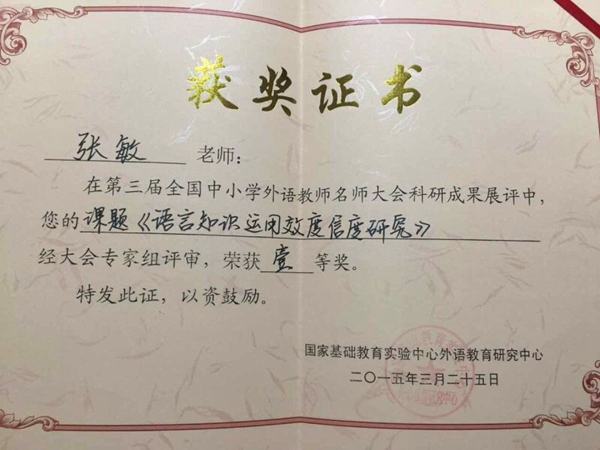 获奖证书
张敏 老师：
在第三届全国中小学外语教师名师大会科研成果展评中，
您的 课题《语言知识运用效度信度研究》
经大会专家组评审，荣获 壹 等奖。
特发此证，以资鼓励。
国家基础教育实验中心外语教育研究中心
二〇一五年三月二十五日